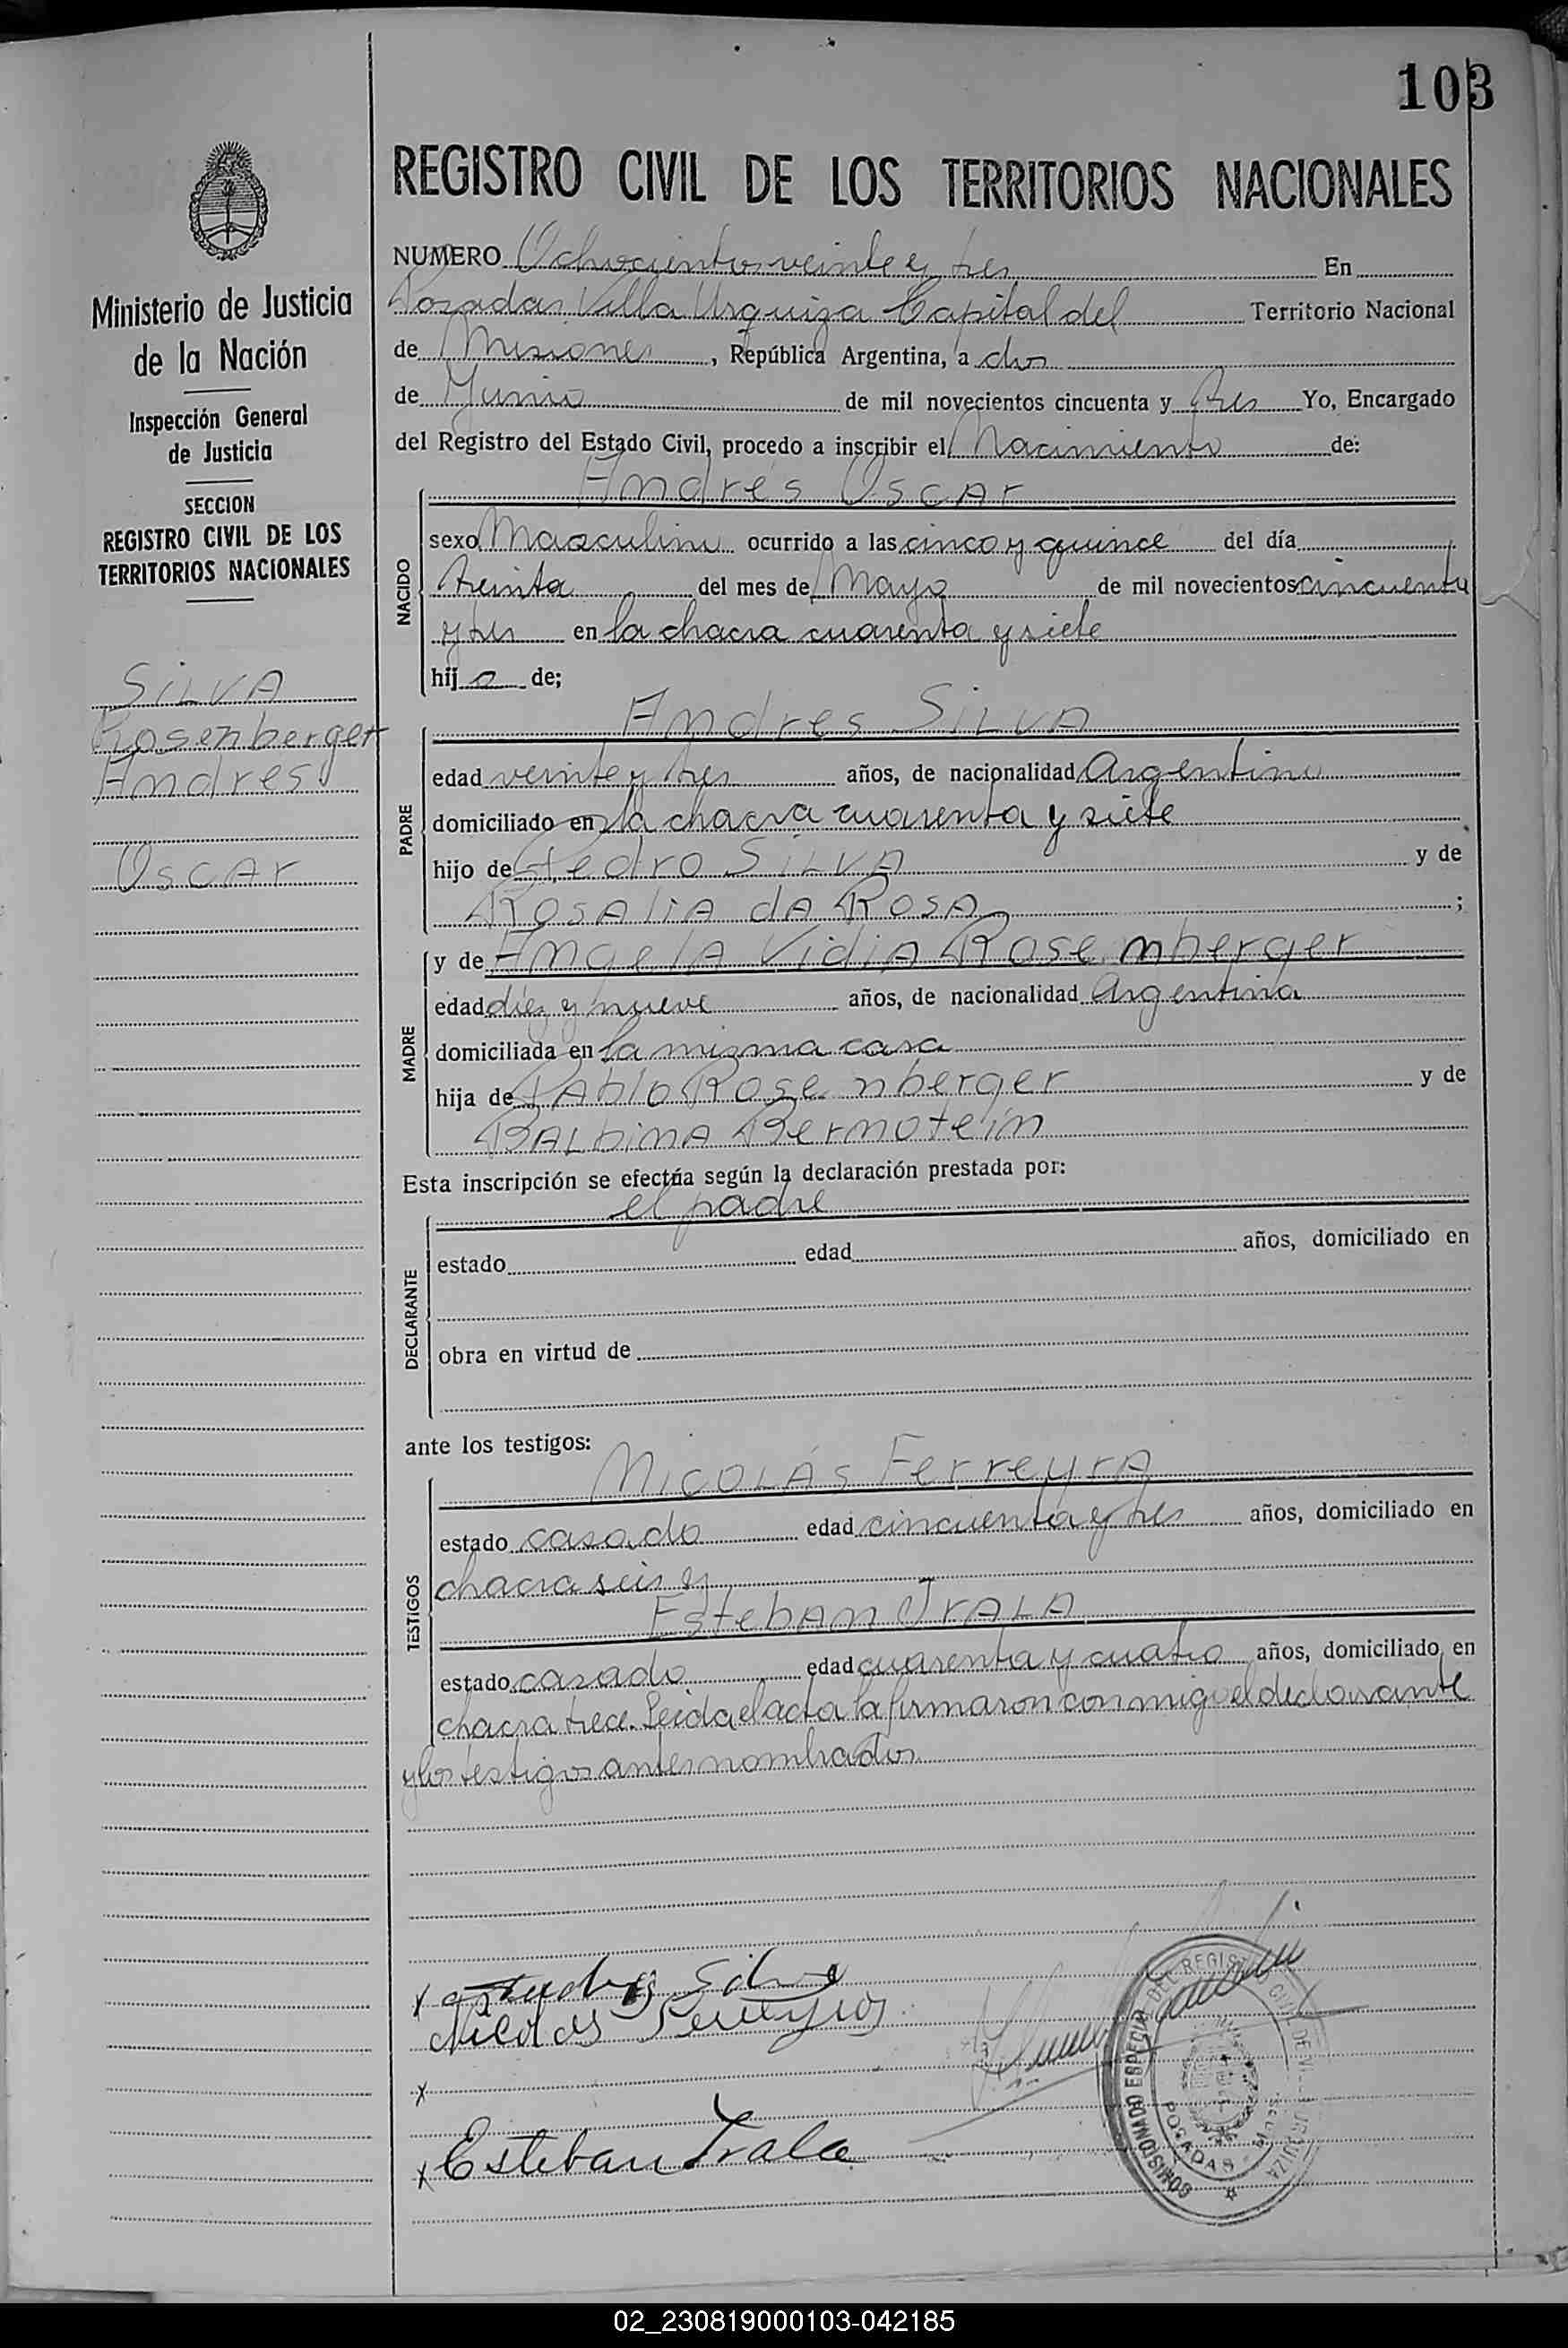 103
Ministerio de Justicia
de la Nación
Inspección General
de Justicia
SECCION
REGISTRO CIVIL DE LOS
TERRITORIOS NACIONALES
SILVA
Rosenberger
Andres
Oscar
REGISTRO CIVIL DE LOS TERRITORIOS NACIONALES
NUMERO Ochocientos veinte y tres En
Posadas Villa Urquiza Capital del Territorio Nacional
de Misiones, República Argentina, a dos
de Junio de mil novecientos cincuenta y tres Yo, Encargado
del Registro del Estado Civil, procedo a inscribir el Nacimiento de:
Andrés Oscar
NACIDO
sexo Masculino ocurrido a las cinco y quince del día
treinta del mes de Mayo de mil novecientos cincuenta
y tres en la chacra cuarenta y siete
hijo de;
Andres SILVA
PADRE
edad veinte y tres años, de nacionalidad Argentino
domiciliado en la chacra cuarenta y siete
hijo de Pedro SILVA y de
ROSALIA dA ROSA ;
MADRE
y de Angela Vidia Rosenberger
edad diez y nueve años, de nacionalidad Argentina
domiciliada en la misma casa
hija de Pablo Rosenberger y de
BALbiNA Bernotein
Esta inscripción se efectúa según la declaración prestada por:
el padre
DECLARANTE
estado edad años, domiciliado en
obra en virtud de
ante los testigos:
NICOLÁS FerreyrA
TESTIGOS
estado casado edad cincuenta y tres años, domiciliado en
chacra seis y
Esteban IrALA
estado casado edad cuarenta y cuatro años, domiciliado en
chacra trece. Leida el acta la firmaron conmigo el declarante
y los testigos antes nombrados
x Andres Silva
Nicolas Ferreyra
x
x Esteban Irala
COMISIONADO ESPECIAL DEL REGISTRO CIVIL DE VILLA URQUIZA
POSADAS
02_230819000103-042185